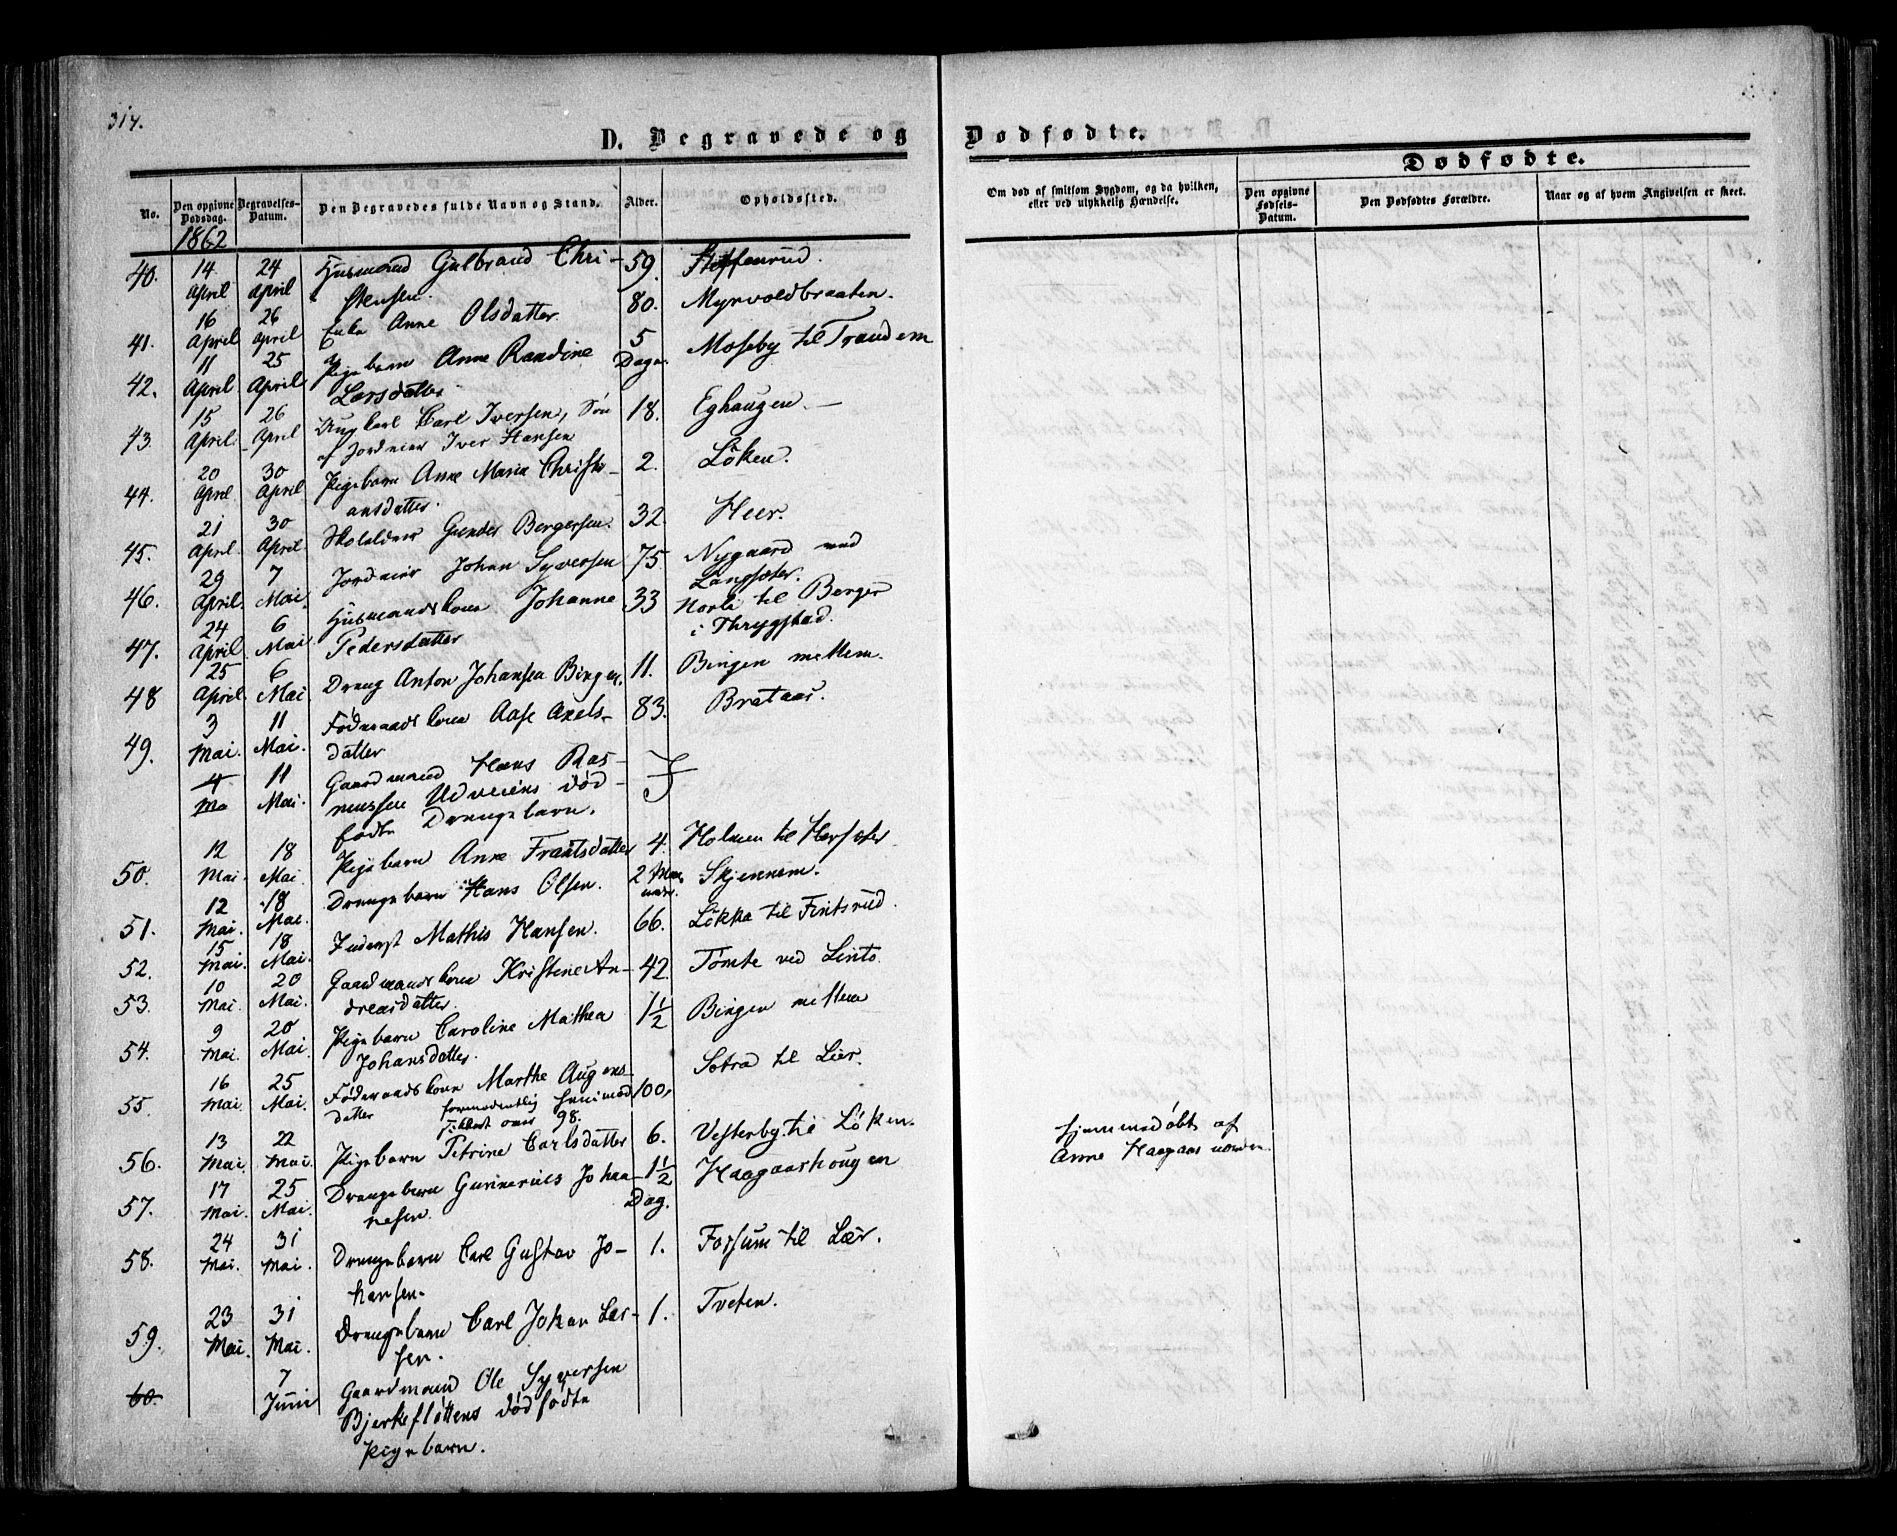 317.
D. Begravede og Dødfødte.
No.
Den opgivne Dødsdag.
Begravelses-Datum.
Den Begravedes fulde Navn og Stand.
Alder.
Opholdssted.
Om død af smitsom Sygdom, og da hvilken, eller ved ulykkelig Hændelse.
Dødfødte.
Den opgivne Fødsels-Datum.
Den Dødfødtes Forældre.
Naar og af hvem Angivelsen er skeet.
1862
40. 14 April 24 April Husmand Gulbrand Chri-
stensen. 59.
41. 16 April 26 April Enke Anne Olsdatter. 80. Myrvoldbraaten.
42. 11 April 25 April Pigebarn Anne Randine
Larsdatter 5 Dage. Moseby til Trandem
43. 15 April 26 April Ungkarl Carl Iversen, Søn
af Jordeier Iver Hansen 18. Eghaugen.
44. 20 April 30 April Pigebarn Anne Maria Christi-
ansdatter. 2. Löken.
45. 21 April 30 April Skolelærer Gunder Bergersen. 32. Heer.
46. 29 April 7 Mai Jordeier Johan Syversen 75. Nygaard ved
Langsæter.
47. 24 April 6 Mai Husmandskone Johanne
Pedersdatter 33 Norli til Berger
i Thrygstad.
48 25 April 6 Mai Dreng Anton Johansen Bingen. 11. Bingen mellem.
49. 3 Mai. 11 Mai. Föderaadskone Aase Axels-
datter 83. Brataas.
4 Ma 11 Mai. Gaardmand Hans Ras-
mussen Udveiens död-
födte Drengebarn.
50. 12 Mai. 18 Mai. Pigebarn Anne Frantsdatter 4. Holmen til Hersæter
51. 12 Mai. 18 Mai. Drengebarn Hans Olsen. 2 Maaneder. Skjennem.
52. 15 Mai. 18 Mai. Inderst Mathis Hansen. 66. Lökka til Fintsrud.
53. 10 Mai. 20 Mai. Gaardmandskone Kristine An-
dreasdatter. 42. Tömte ved Linto
54. 9 Mai. 20 Mai. Pigebarn Caroline Mathea
Johansdatter. 1½ Bingen mellem
55. 16 Mai. 25 Mai. Föderaadskone Marthe Augens-
datter formodentlig 98. 100. Sotra til Lier.
56. 13 Mai. 22 Mai. Pigebarn Petrine Carlsdatter 6. Vesterby til Löken.
57. 17 Mai. 25 Mai. Drengebarn Gunnerius Johan-
nesen. 1½ Dag. Haagaashougen
hjemmedöbt af
Anne Haagaas norden
58. 24 Mai. 31 Mai. Drengebarn Carl Gustav Jo-
hansen. 1. Forsum til Lier.
59. 23 Mai. 31 Mai. Drengebarn Carl Johan Lar-
sen. 1. Tveten.
60. 7 Juni Gaardmand Ole Syversen
Bjerkeflöttens dödfödte
Pigebarn.